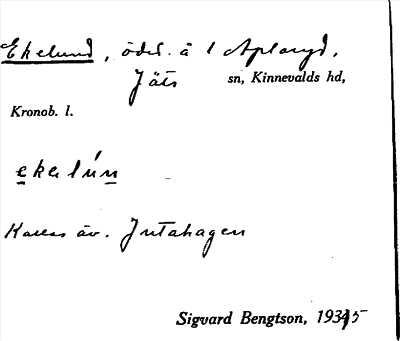 Ekelund, öde. å 1 Aplaryd,
Jäts sn, Kinnevalds hd,
Kronob. l.
ekelún
Kallas äv. Jutahagen
Sigvard Bengtson, 1935